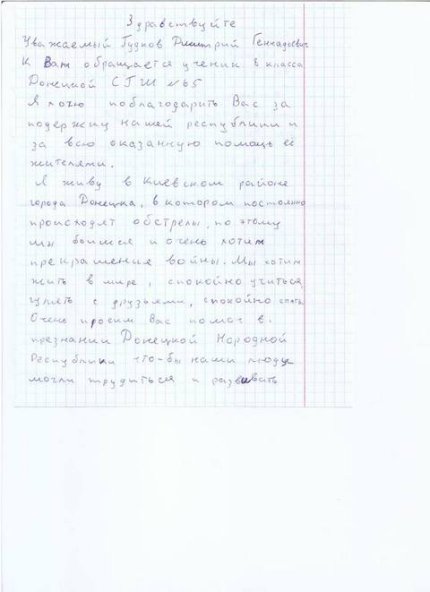 Здравствуйте
Уважаемый Гудков Дмитрий Геннадьевич
К Вам обращается ученик 8 класса
Донецкой СГШ №65
Я хочу поблагодарить Вас за
подержку нашей республики и
за всю оказанную помощь её
жителями.
Я живу в Киевском районе
города Донецка, в котором постоянно
происходят обстрелы, по этому
мы боимся и очень хотим
прекращения войны. Мы хотим
жить в мире, спокойно учиться
гулять с друзьями, спокойно спать
Очень просим Вас помоч в
признании Донецкой Народной
Республики что-бы наши люди
могли трудиться и развивать